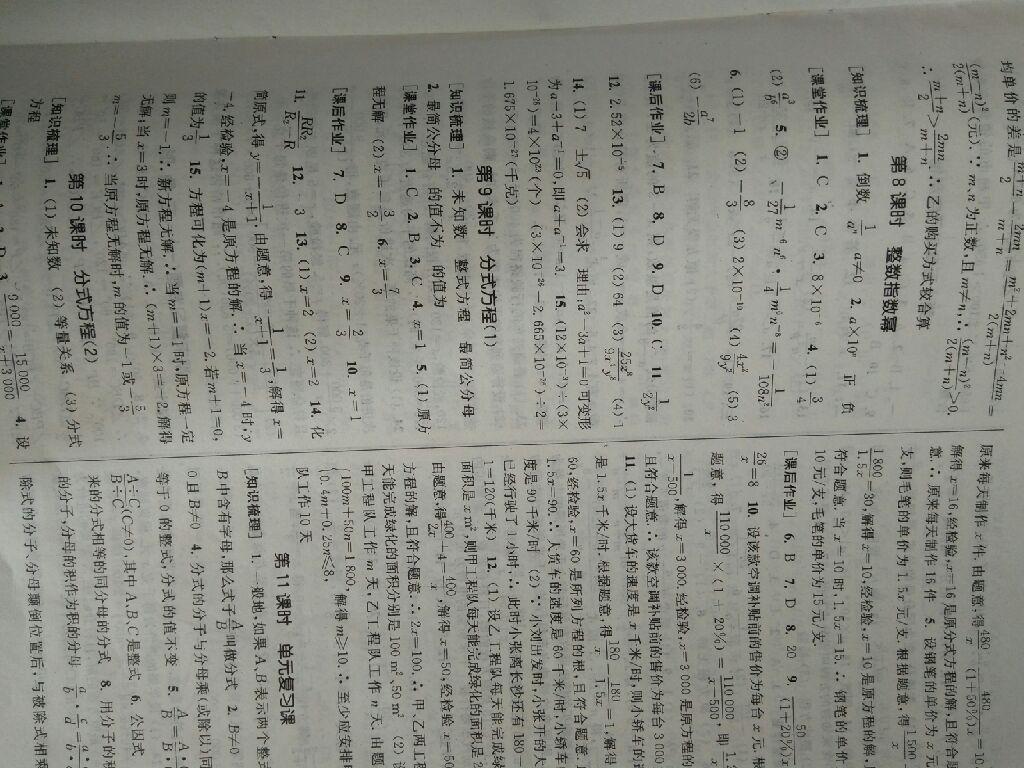 均单价的差是 (m+n)/2 − 2mn/(m+n) = (m²+2mn+n²−4mn)/2(m+n) =
(m−n)²/2(m+n)(元).∵m、n 为正数,且 m≠n,∴(m−n)²/2(m+n)>0,
∴(m+n)/2>2mn/(m+n).∴乙的购买方式较合算
第8课时 整数指数幂
[知识梳理] 1. 倒数 1/aⁿ a≠0 2. a×10ⁿ 正 负
[课堂作业] 1. C 2. C 3. 8×10⁻⁶ 4. (1) 3/4
(2) a³/b⁶ 5. ② −1/27 m⁻⁶n⁶·1/4 m⁶n⁻⁸=−1/108n²
6. (1) −1 (2) −8/3 (3) 2×10⁻¹⁰ (4) 4x²/9y² (5) 3
(6) −a⁷/2b
[课后作业] 7. B 8. D 9. D 10. C 11. 1/2y²
12. 2.52×10⁻⁵ 13. (1) 9 (2) 64 (3) 25x⁸/9x²y⁸ (4) 1
14. (1) 7 ±√5 (2) 会求 理由:a²−3a+1=0可变形
为a−3+a⁻¹=0,即a+a⁻¹=3. 15. (12×10⁻³)÷(3×
10⁻²⁶)=4×10²³(个) (3×10⁻²⁶−2.665×10⁻²⁶)÷2=
1.675×10⁻²⁷(千克)
第9课时 分式方程(1)
[知识梳理] 1. 未知数 整式方程 最简公分母
2. 最简公分母 的值不为 的值为
[课堂作业] 1. C 2. B 3. C 4. x=1 5. (1) 原方
程无解 (2) x=−3/2 6. x=7/3
[课后作业] 7. D 8. C 9. x=2/3 10. x=1
11. RR₂/(R₂−R) 12. −3 13. (1) x=2 (2) x=2 14. 化
简原式,得 y=−1/(x+1),由题意,得 −1/(x+1)=1/3,解得 x=
−4.经检验,x=−4是原方程的解.∴当 x=−4时,y
的值为1/3 15. 方程可化为(m+1)x=−2,若m+1=0,
则m=−1.∴新方程无解.∴当m=−1时,原方程一定
无解;当x=3时,原方程无解.∴(m+1)×3=−2,解得
m=−5/3.∴当原方程无解时,m的值为−1或−5/3
第10课时 分式方程(2)
[知识梳理] 1. (1) 未知数 (2) 等量关系 (3) 分式
方程
[课堂作业] 3. 9000/x=15000/(x+3000) 4. 设
原来每天制作x件.由题意,得480/x−480/(1+50%)x=10
解得x=16.经检验,x=16是原分式方程的解,且符合题
意.∴原来每天制作16件 5. 设钢笔的单价为x元
支,则毛笔的单价为1.5x元/支.根据题意,得1500/x
1800/1.5x=30,解得x=10.经检验,x=10是原方程的解,
符合题意.当x=10时,1.5x=15.∴钢笔的单价
10元/支,毛笔的单价为15元/支.
[课后作业] 6. B 7. D 8. 20 9. 50/(1+20%)x
26/x=8 10. 设该款空调补贴前的售价为每台x元.根
题意,得110000/x×(1+20%)=110000/(x−500),即1.
1/(x−500).解得x=3000.经检验,x=3000是原方程的
且符合题意.∴该款空调补贴前的售价为每台3000
11. (1) 设大货车的速度是x千米/时,则小轿车的速
是1.5x千米/时.根据题意,得180/x−180/1.5x=1,解得
60.经检验,x=60是所列方程的根,且符合题意.
1.5x=90.∴大货车的速度是60千米/时,小轿车
度是90千米/时 (2) ∵小刘出发时,小张开的大
已经行驶了1小时,∴此时小张离长沙还有180−
1=120(千米) 12. (1) 设乙工程队每天能完成绿
面积是x m²,则甲工程队每天能完成绿化的面积是2
由题意,得400/x−400/2x=4,解得x=50.经检验,x=50
方程的解,且符合题意.∴2x=100.∴甲、乙两工程
天能完成绿化的面积分别是100 m²、50 m² (2) 设
甲工程队工作m天,乙工程队工作n天.由题
{100m+50n=1800,
0.4m+0.25n≤8, 解得m≥10.∴至少应安排甲
队工作10天
第11课时 单元复习课
[知识梳理] 1. 一般地,如果A、B表示两个整式
B中含有字母,那么式子A/B叫做分式 2. B≠0
0且B≠0 4. 分式的分子与分母乘(或除以)同
等于0的整式,分式的值不变 5. A/B=A·
A÷C/B÷C(C≠0),其中A、B、C是整式 6. 公因式
来的分式相等的同分母的分式 8. 用分子的积
的分子,分母的积作为积的分母 a/b·
除式的分子、分母颠倒位置后,与被除式相乘